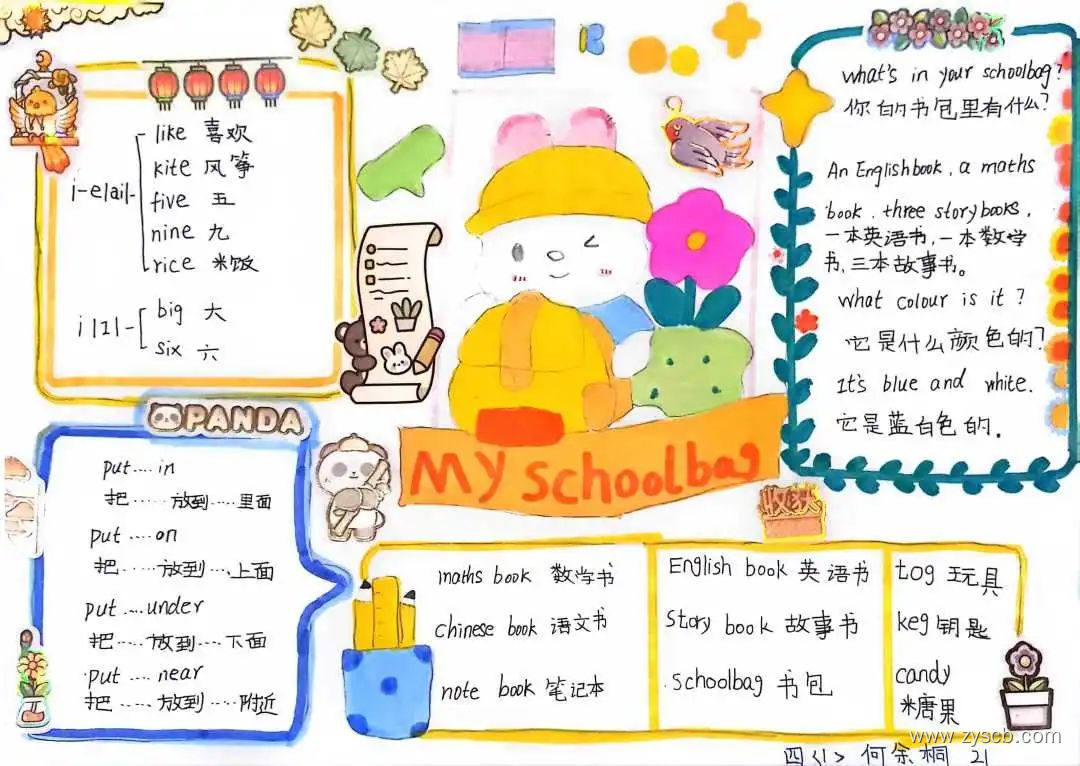 like 喜欢
kite 风筝
i-e|ai|-
five 五
nine 九
rice 米饭
big 大
i |I|-
six 六
PANDA
put....in
把......放到....里面
put....on
把....放到...上面
put....under
把....放到....下面
put....near
把....放到....附近
My schoolbag
收获
what's in your schoolbag?
你的书包里有什么?
An Englishbook, a maths
book, three storybooks.
一本英语书,一本数学
书,三本故事书。
what colour is it?
它是什么颜色的?
It's blue and white.
它是蓝白色的.
maths book 数学书
chinese book 语文书
note book 笔记本
English book 英语书
story book 故事书
schoolbag 书包
tog 玩具
keg 钥匙
candy
糖果
www.zyscb.com
四<1> 何余桐 21